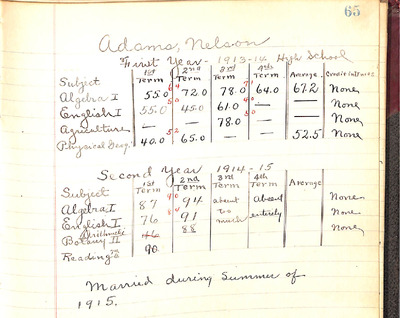 65
Adams, Nelson
First Year - 1913-14 High School
Subject 1st Term 2nd Term 3rd Term 4th Term Average Credit
Algebra I 55.0 72.0 78.0 64.0 67.2 None
English I 55.0 45.0 61.0 — — None
Agriculture — — 78.0 — — None
Physical Geog. 40.0 65.0 — — 52.5 None
Second Year 1914-15
Subject 1st Term 2nd Term 3rd Term 4th Term Average
Algebra I 87 94 absent Absent None
English I 76 91 too much entirely None
Arithmetic
Botany II 46 88 None
Reading 90
Married during Summer of
1915.